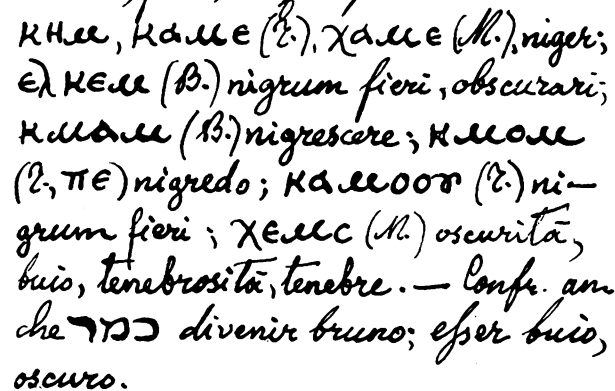 ⲕⲏⲙ, ⲕⲁⲙⲉ (T.), ⲭⲁⲙⲉ (M.), niger;
ⲉⲗⲕⲉⲙ (B.) nigrum fieri, obscurari;
ⲕⲙⲁⲙ (B.) nigrescere; ⲕⲙⲟⲙ
(T., ⲡⲉ) nigredo; ⲕⲁⲙⲟⲟⲩ (T.) ni–
grum fieri; ⲭⲉⲙⲥ (M.) oscurità,
buio, tenebrosità, tenebre. — Confr. an
che כמר divenir bruno; eſser buio,
oscuro.